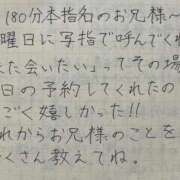 180分本指名のお兄様〜
曜日に写指で呼んでくれ
た会いたい」ってその場
日の予約してくれたの
ごく嬉しかった!!
れからお兄様のことを
くさん教えてね。